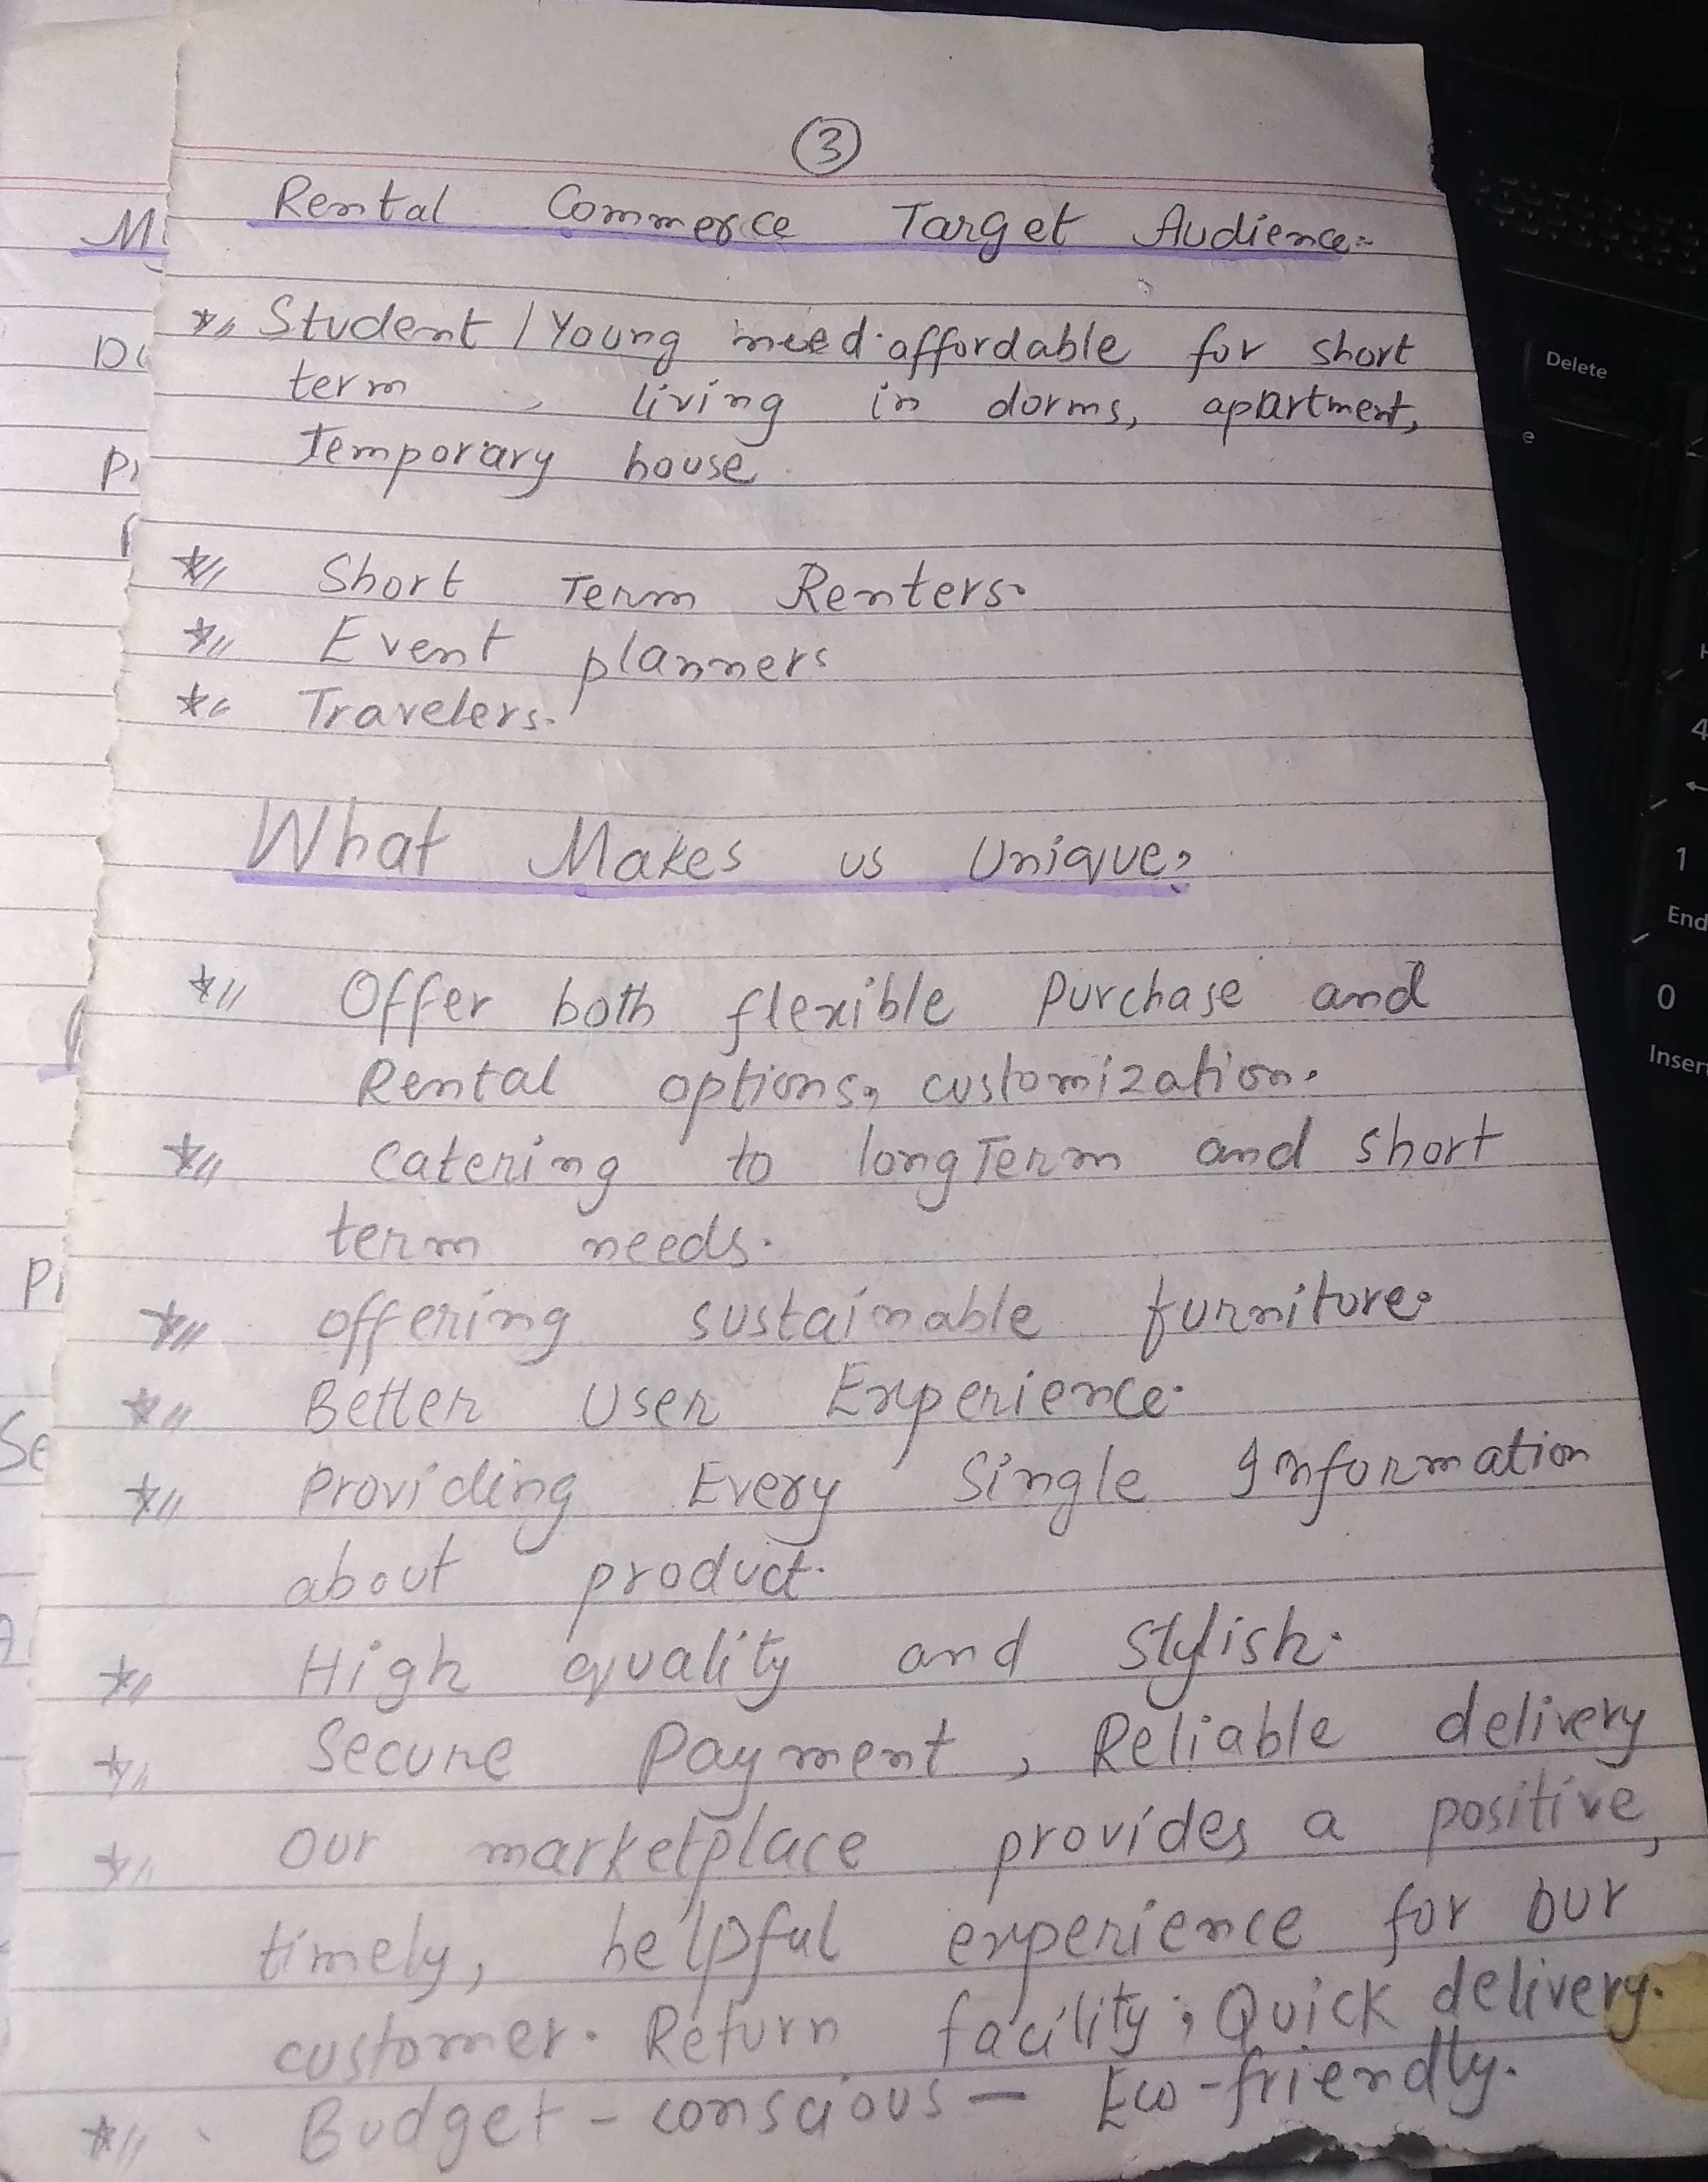 3
Rental Commerce Target Audience:-
* Student / Young need affordable for short
term , living in dorms, apartment,
Temporary house.
* Short Term Renters.
* Event planners
* Travelers.
What Makes us Unique?
* Offer both flexible Purchase and
Rental options, customization.
* Catering to long Term and short
term needs.
* offering sustainable furniture.
* Better User Experience.
* Providing Every Single Information
about product.
* High quality and stylish.
* Secure Payment , Reliable delivery
* Our marketplace provides a positive,
timely, helpful experience for our
customer. Return facility, Quick delivery.
* Budget - conscious - Eco-friendly.
Delete
4
1
End
0
Inser